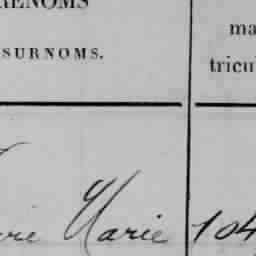 PRÉNOMS
SURNOMS.
ma
tricul
Marie 104